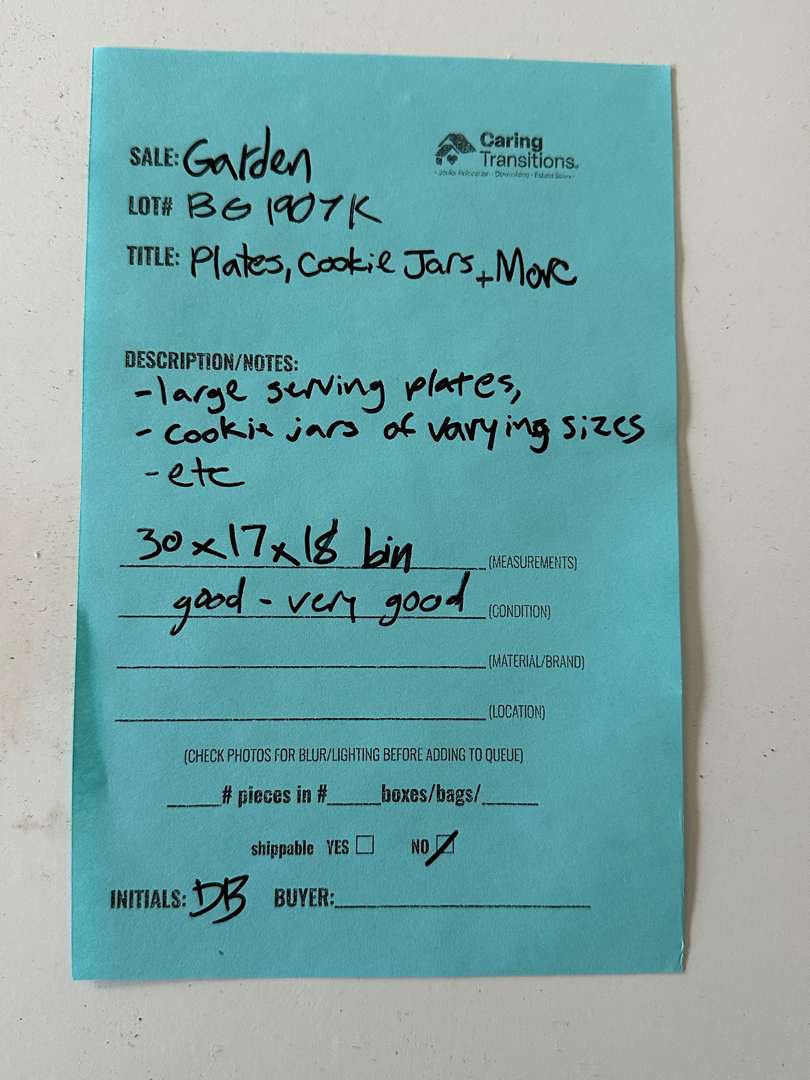 SALE: Garden
Caring
Transitions.
• Senior Relocation • Downsizing • Estate Sales •
LOT# BG 1907K
TITLE: Plates, Cookie Jars, + More
DESCRIPTION/NOTES:
- large serving plates,
- cookie jars of varying sizes
- etc
30 x 17 x 18 bin (MEASUREMENTS)
good - very good (CONDITION)
(MATERIAL/BRAND)
(LOCATION)
(CHECK PHOTOS FOR BLUR/LIGHTING BEFORE ADDING TO QUEUE)
_____# pieces in #_____boxes/bags/_____
shippable YES ☐ NO ☑
INITIALS: DB BUYER: